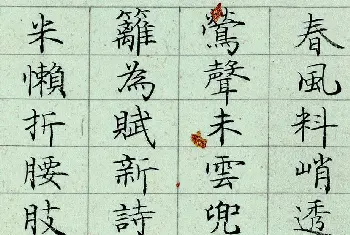 春風料峭透
鶯聲未雲兜
籬為賦新詩
米懶折腰肢